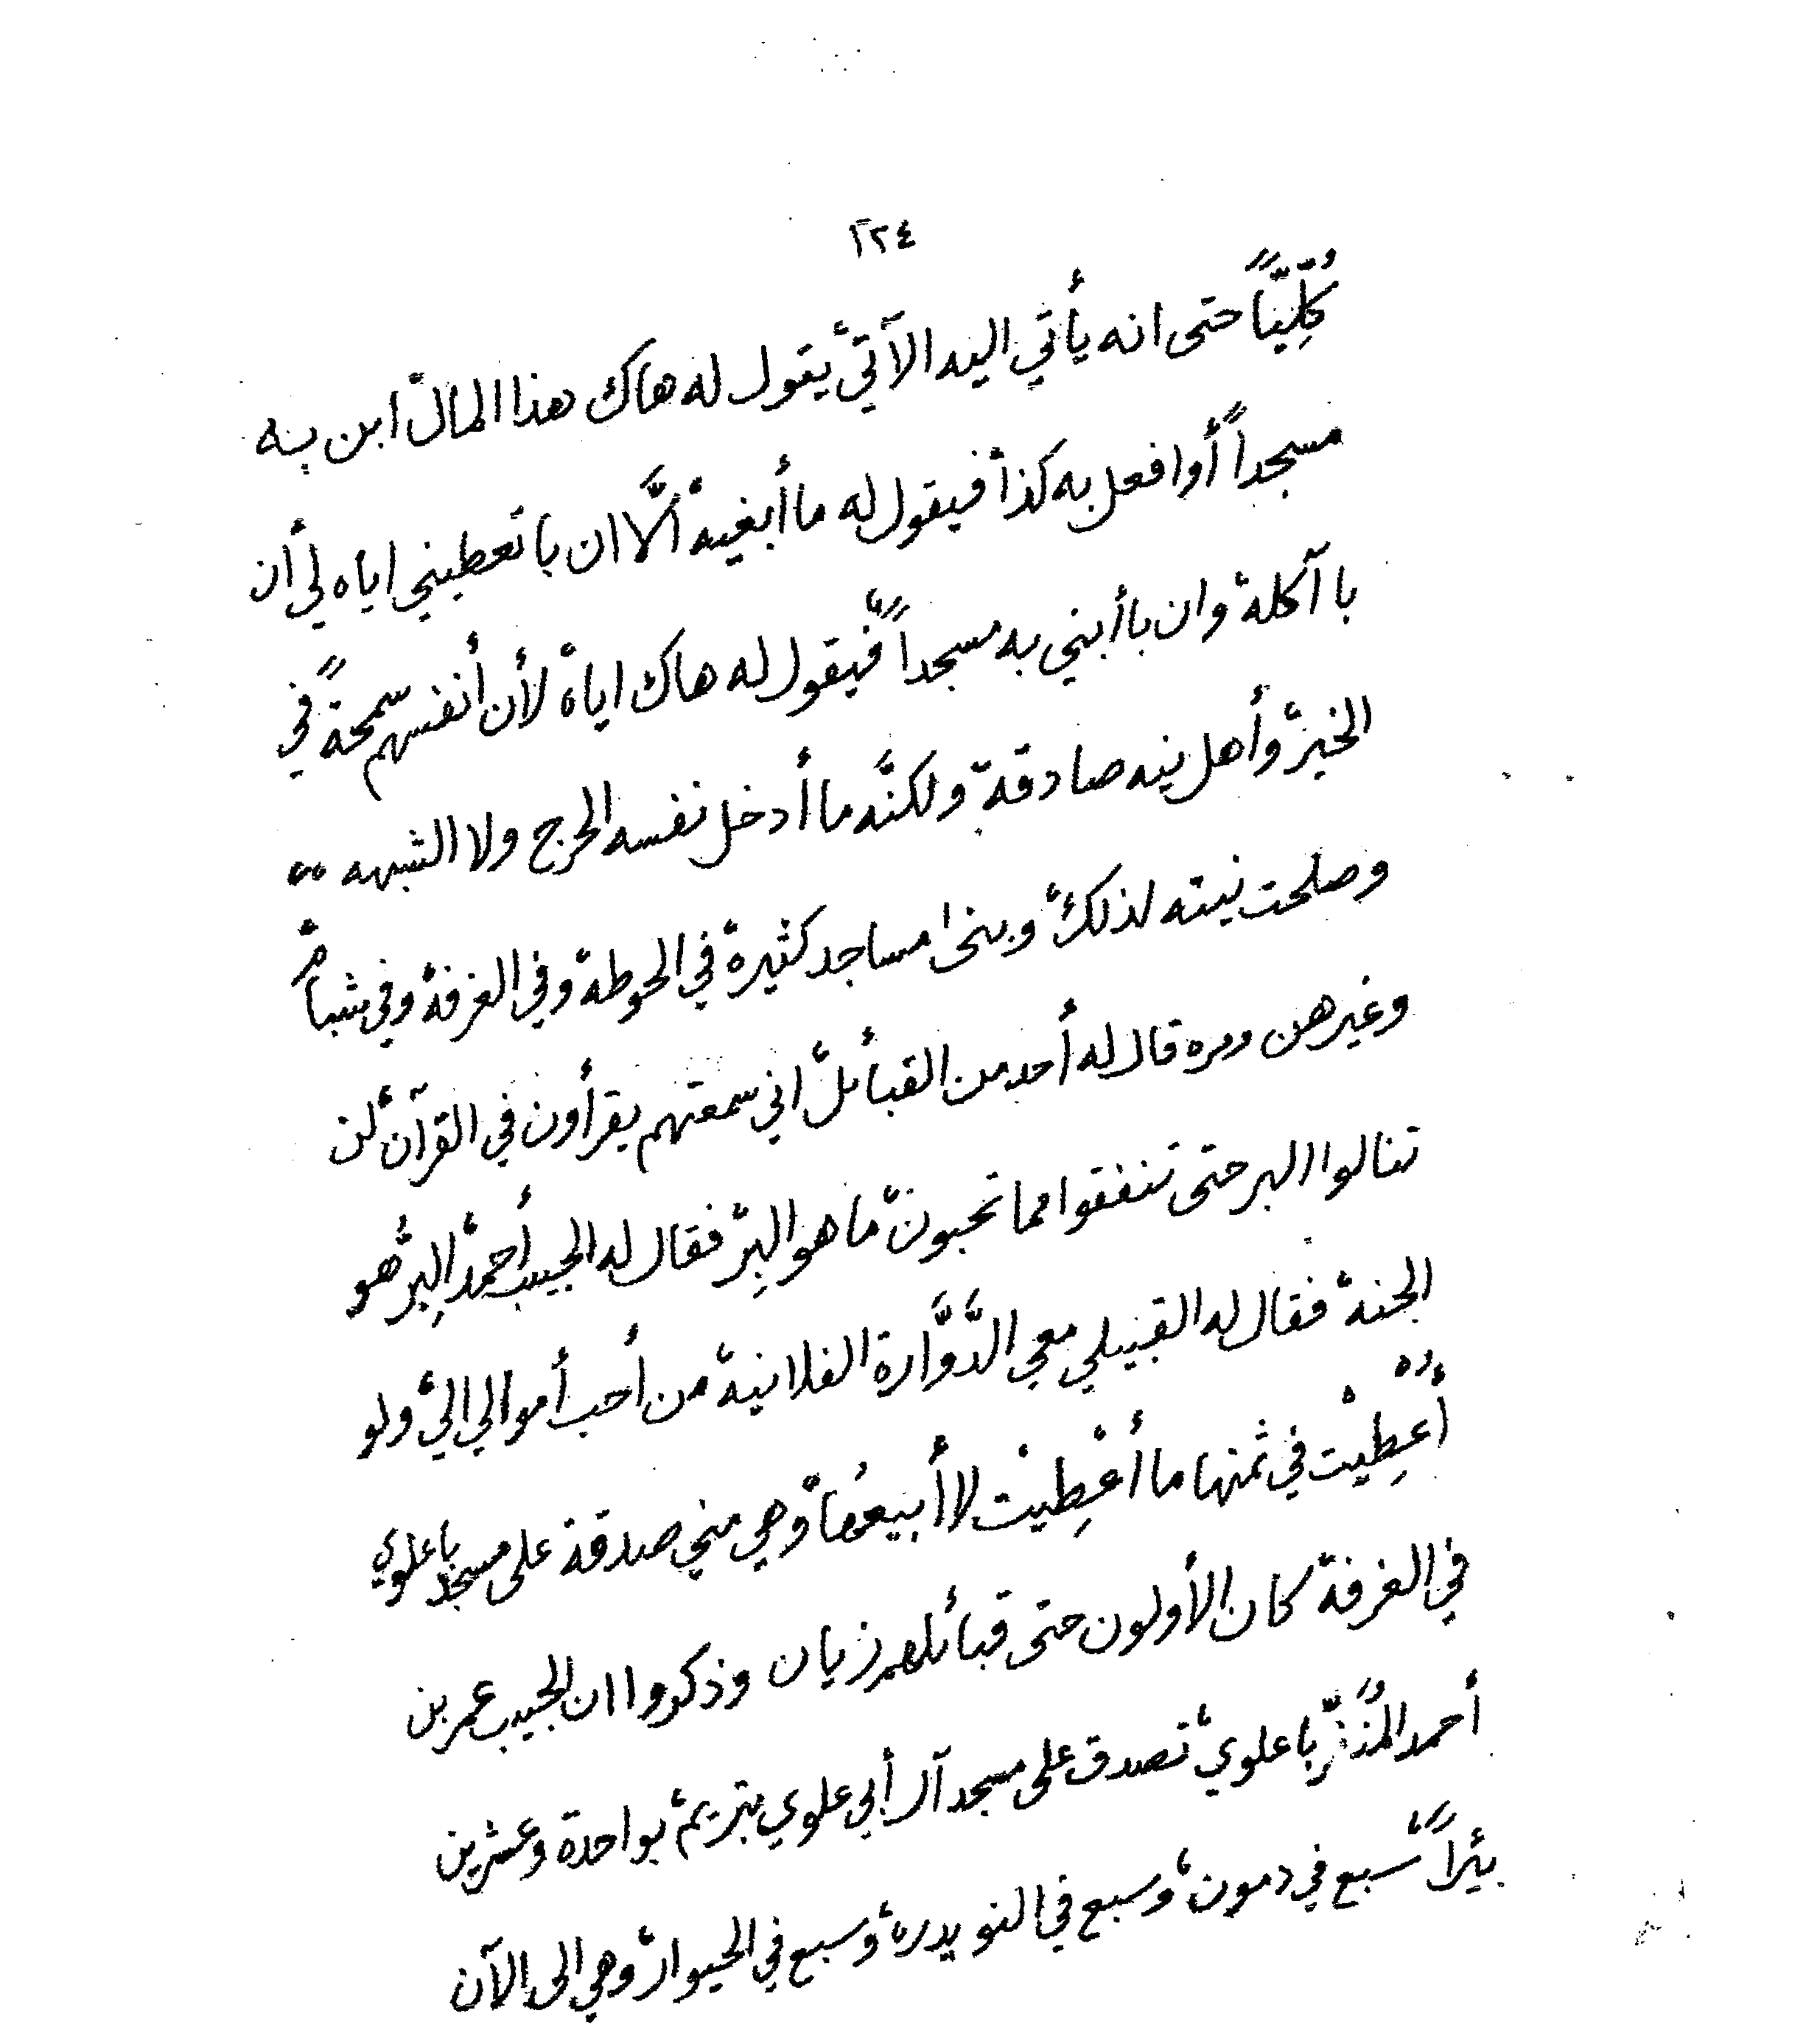 ٢٢٤
كُلِّيّاً حتى انه يأتي اليه الآتي، يقول له هاك هذا المال، ابن به
مسجداً، أو افعل به كذا، فيقول له ما أبغيه، الَّا ان با تعطيني اياه لي أن
با آكله، وان با أبني به مسجداً، فيقول له هاك اياه، لأن أنفسهم سمحةً في
الخير، وأهل نيه صادقة، ولكنَّه ما أدخل نفسه الحرج ولا الشبهه،،
وصلحت نيته لذلك، وبنى مساجد كثيرة، في الحوطة، وفي الغرفة، وفي شبام،
وغيرهن ومره قال له أحد من القبائل، اني سمعتهم يقرأون في القرآن، لن
تنالوا البر حتى تنفقوا مما تحبون، ما هو البِر، فقال له الحبيب أحمد، البِر هو
الجنة، فقال له القبيلي معي الدَّوَّارة الفلانية، من أحب أموالي الي، ولو
أُعطِيْت في ثمنها ما أُعْطِيْت لا أبيعُها، وهي مني صدقة على مسجد باعلوي
في الغرفة، كان الأولون حتى قبائلهم زيان وذكروا ان الحبيب عمر بن
أحمد المُنَفِّر باعلوي، تصدق على مسجد آل أبي علوي بتريم، بواحدة وعشرين
بئراً، سبع في دمون، وسبع في النويدره، وسبع في الحيوار، وهي الى الآن